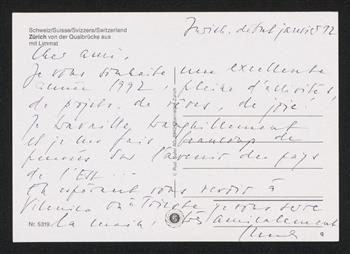 Schweiz/Suisse/Svizzera/Switzerland
Zürich von der Quaibrücke aus
mit Limmat
Zurich, début janvier 92
Cher ami,
Je vous souhaite une excellente
année 1992, pleine d'activités,
de projets, de rêves, de joie!
Je travaille tranquillement
et je me fais beaucoup de
pensées sur l'avenir des pays
de l'Est...
En espérant vous revoir à
Vilenica ou à Trieste je vous serre
la main, très amicalement
Nr. 5319